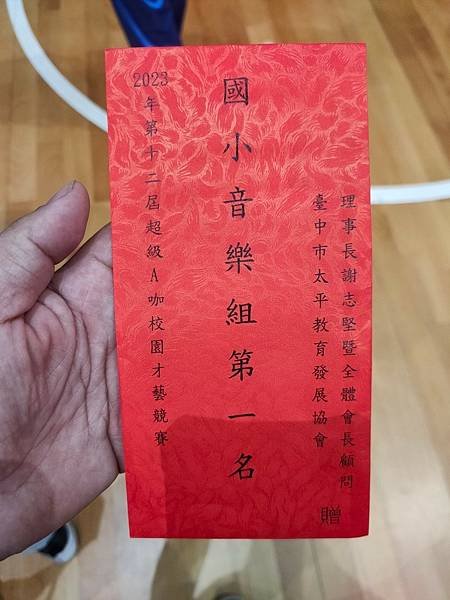 臺中市太平教育發展協會
理事長謝志堅暨全體會長顧問
贈
國小音樂組第一名
2023年第十二屆超級A咖校園才藝競賽